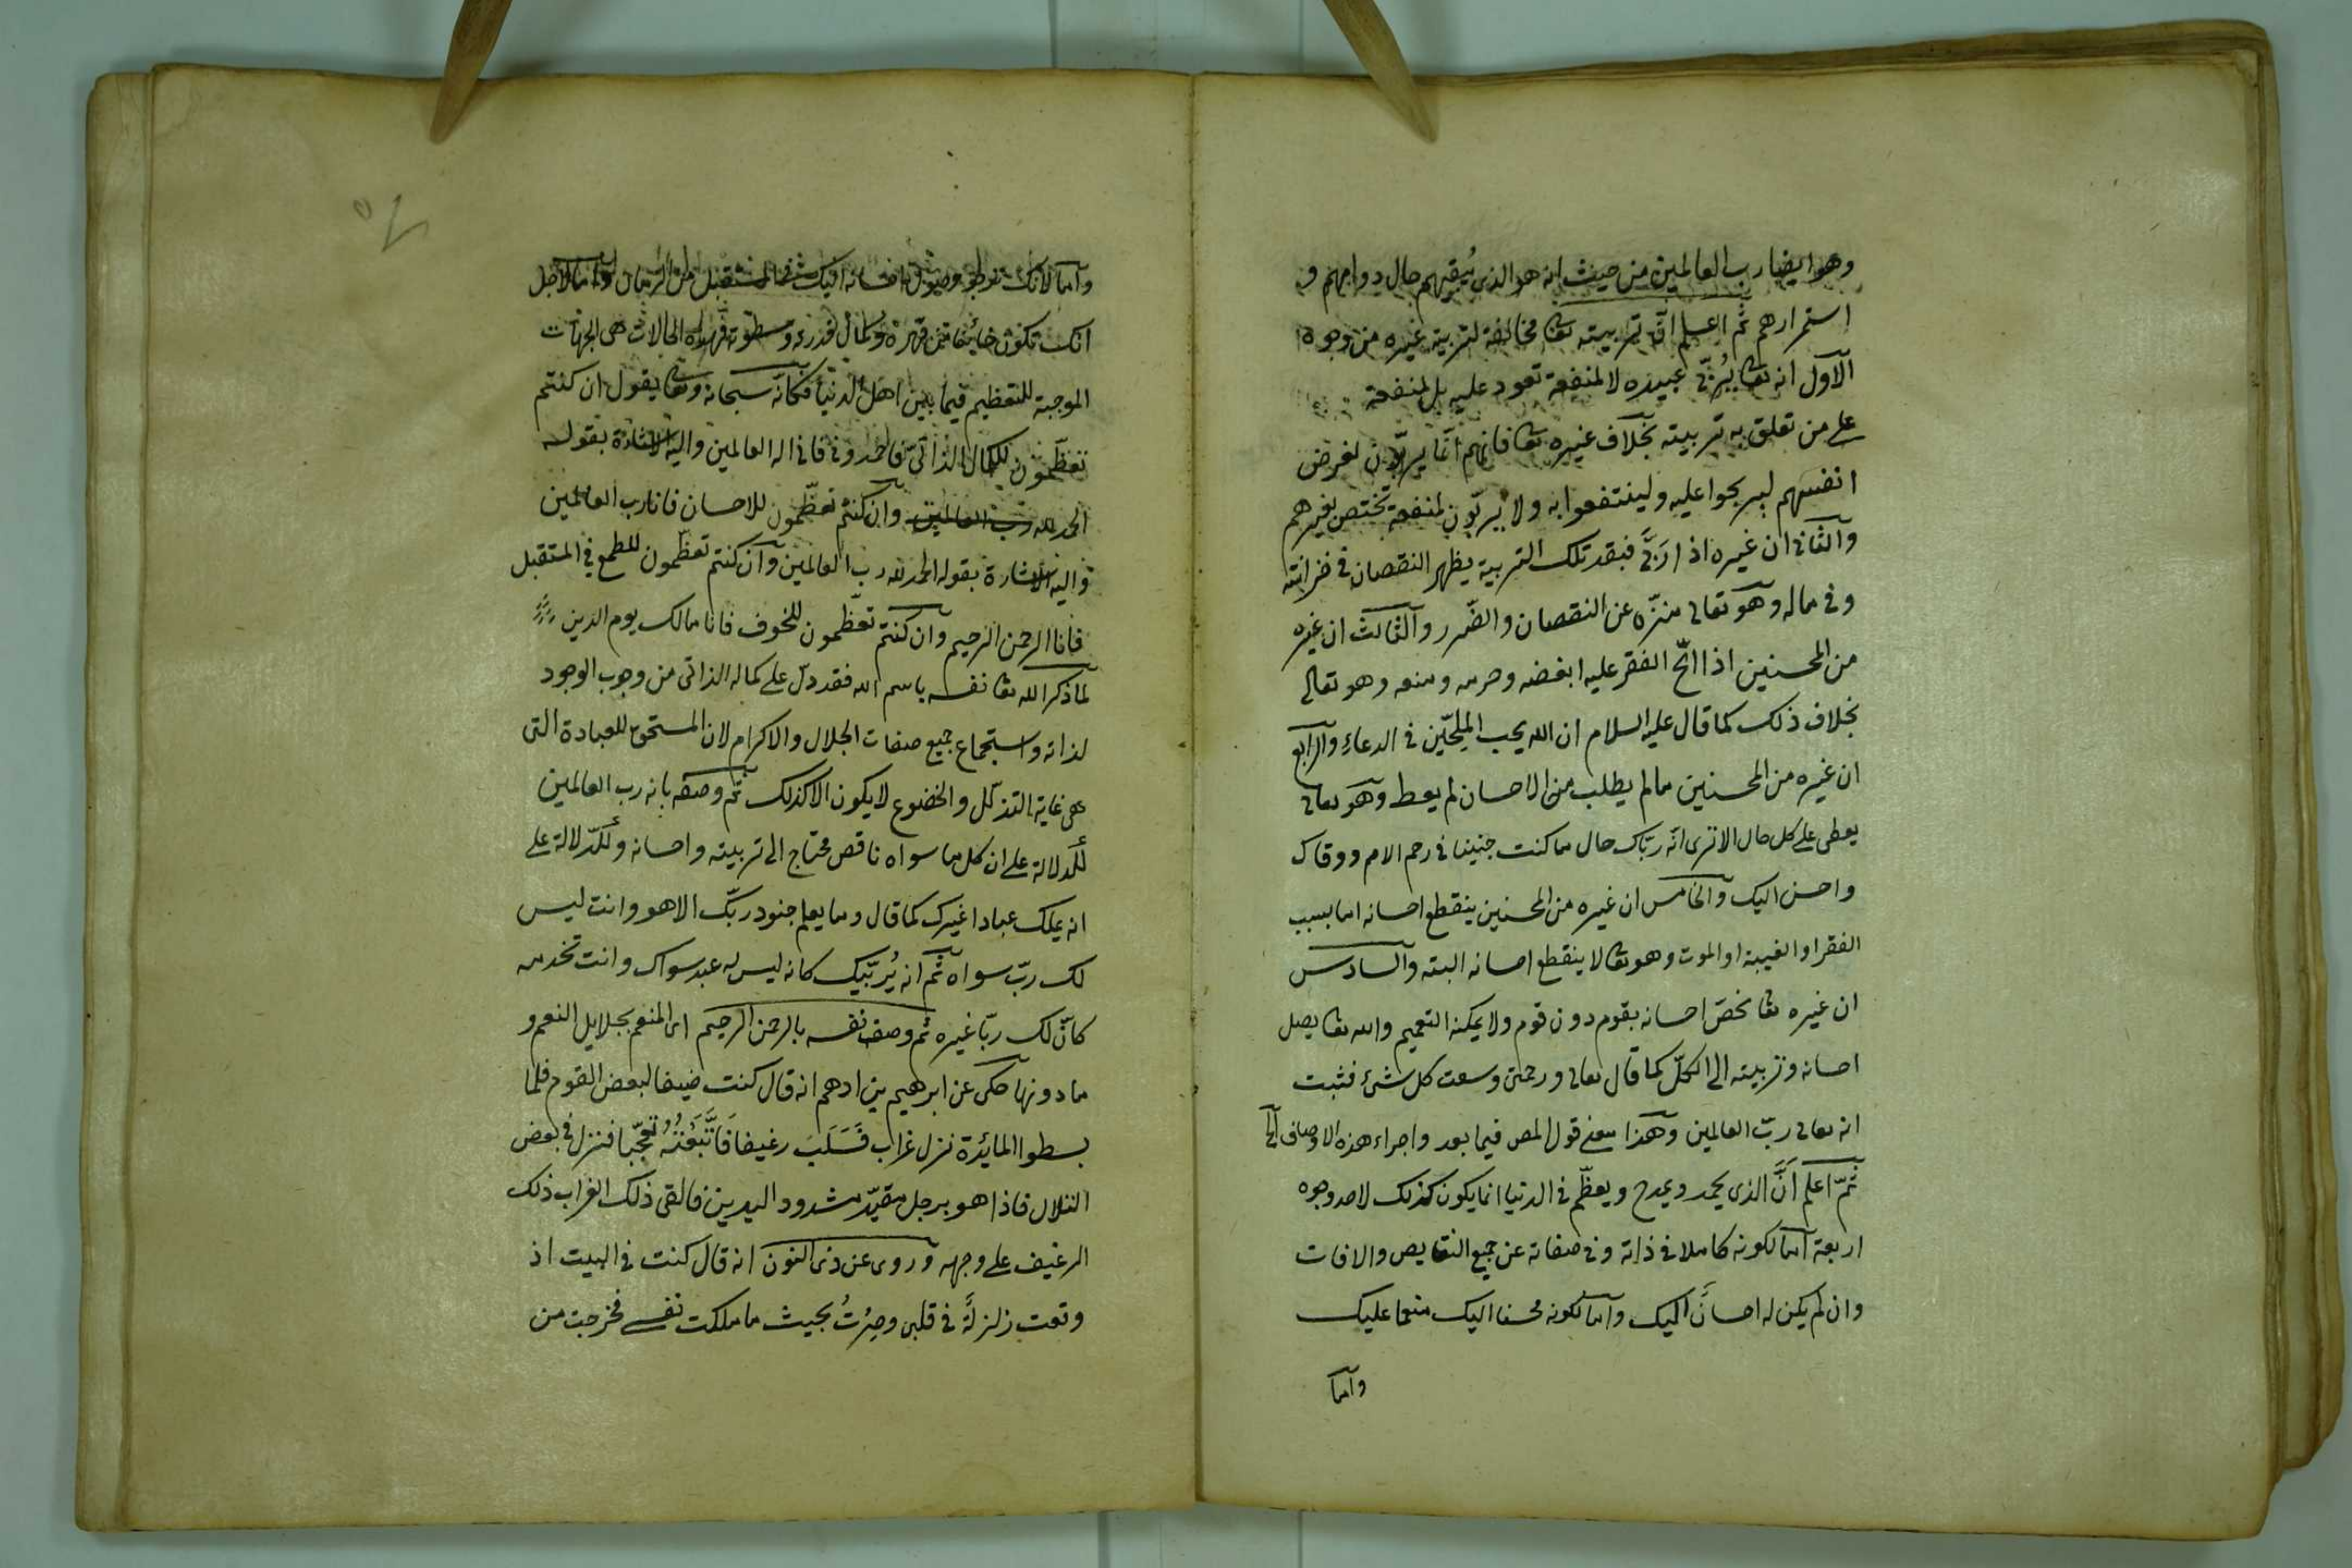 وهو ايضا رب العالمين من حيث انه هو الذى يُبقيهم حال دوامهم و
استمرارهم ثم اعلم انّ تربيته تعا مخالفة لتربية غيره من وجوه ا
الاول انه تعا يُربّى عبيده لا لمنفعة تعود عليه بل لمنفعة
على من تعلق به تربيته بخلاف غيره تعا فانهم انّما يربّون لغرض
انفسهم ليربحوا عليه ولينتفعوا به ولا يربّون لمنفعة تختص بغيرهم
والثانى ان غيره اذا ربَّى فبقدر تلك التربية يظهر النقصان فى خزائنه
وفى ماله وهو تعالى منزّه عن النقصان والضّرر والثالث ان غيره
من المحسنين اذا الحّ الفقر عليه ابغضه وحرمه ومنعه وهو تعالى
بخلاف ذلك كما قال عليه السلام ان الله يحب الملِحّين فى الدعاءِ والرابع
ان غيره من المحسنين ما لم يطلب منه الاحسان لم يعط وهو تعالى
يعطى على كل حال الا ترى انه ربّاك حال ما كنت جنينا فى رحم الام ووقاك
واحسن اليك والخامس ان غيره من المحسنين ينقطع احسانه اما بسبب
الفقر او الغيبة او الموت وهو تعا لا ينقطع احسانه البتة والسادس
ان غيره تعا يخصّ احسانه بقوم دون قوم ولا يمكنه التعميم والله تعا يصل
احسانه وتربيته الى الكلّ كما قال تعالى ورحمتى وسعت كل شئ فثبت
انه تعالى ربّ العالمين وهذا معنى قول المص فيما بعد واجراء هذه الاوصاف الخ
ثمّ اعلم انَّ الذى يحمد ويمدح ويعظّم فى الدنيا انما يكون كذلك لاحد وجوه
اربعة اما لكونه كاملا فى ذاته وفى صفاته عن جميع النقايص والافات
وان لم يكن له احسانٌ اليك واما لكونه محسنا اليك منعما عليك
واما
واما لانك ترجو وصول احسانه اليك فى المستقبل من الزمان واما لاجل
انك تكون خائفا من قهره وكمال قدرته وسطوته فهذه الحالات هى الجهات
الموجبة للتعظيم فيما بين اهل الدنيا فكانّه سبحانه وتعا يقول ان كنتم
تعظّمون للكمال الذاتى فاحمدونى فانى اله العالمين واليه الاشارة بقوله
الحمد لله رب العالمين وان كنتم تعظّمون للاحسان فانا رب العالمين
واليه الاشارة بقوله الحمد لله رب العالمين وان كنتم تعظّمون للطمع فى المستقبل
فانا الرحمن الرحيم وان كنتم تعظّمون للخوف فانا مالك يوم الدين
لما ذكر الله تعا نفسه باسم الله فقد دلّ على كماله الذاتى من وجوب الوجود
لذاته واستجماع جميع صفات الجلال والاكرام لان المستحق للعبادة التى
هى غاية التذلّل والخضوع لا يكون الا كذلك ثم وصفه بانه رب العالمين
للدلالة على ان كل ما سواه ناقص محتاج الى تربيته واحسانه وللدّلالة على
انه يملك عبادا غيرك كما قال وما يعلم جنود ربّك الا هو وانت ليس
لك ربّ سواه ثم انه يُربّيك كانه ليس له عبد سواك وانت تخدمه
كانّ لك ربّا غيره ثم وصف نفسه بالرحمن الرحيم اى المنعم بجلايل النعم و
ما دونها حكى عن ابرهيم بن ادهم انه قال كنت ضيفا لبعض القوم فلما
بسطوا المائدة نزل غراب فَسَلَبَ رغيفا فَاتَّبَعْتُهُ تعجّبا فنزل فى بعض
التلال فاذا هو برجل مقيّد مشدود اليدين فالقى ذلك الغراب ذلك
الرغيف على وجهه وروى عن ذى النون انه قال كنت فى البيت اذ
وقعت زلزلةٌ فى قلبى وصِرْتُ بحيث ما ملكت نفسى فخرجت من